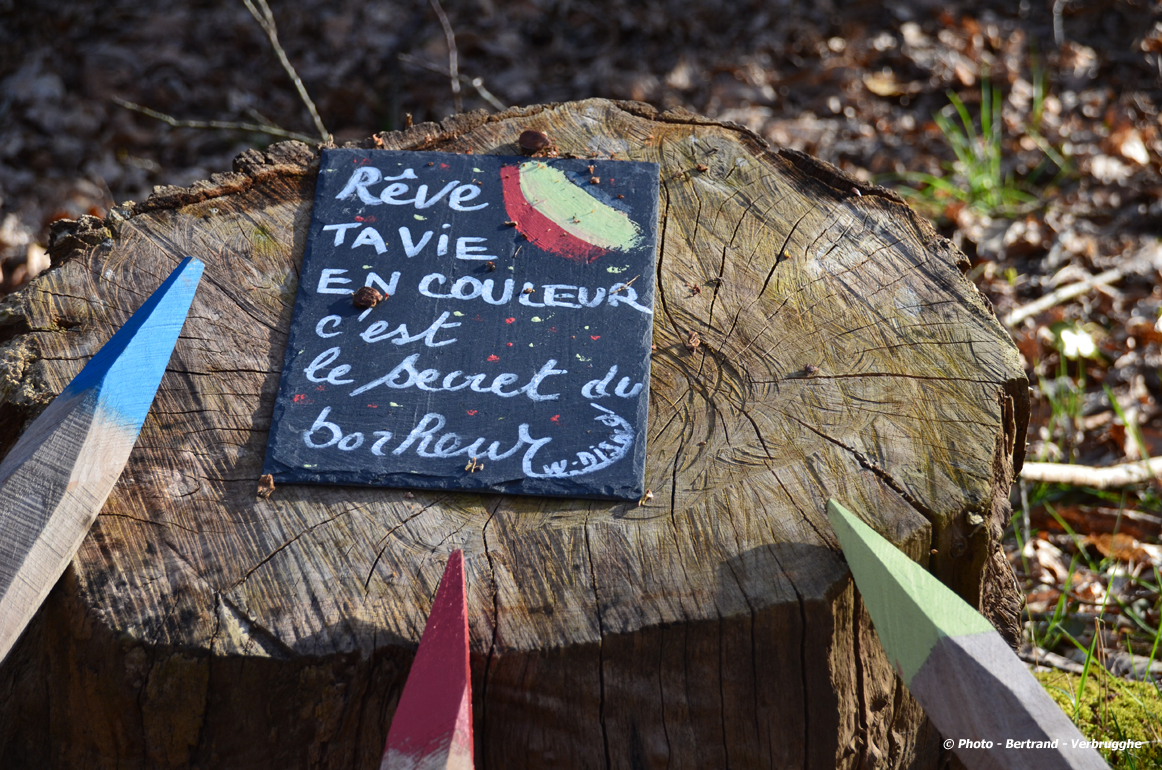 Rêve
TA VIE
EN COULEUR
c'est
le secret du
bonheur
W. Disney
© Photo - Bertrand - Verbrugghe